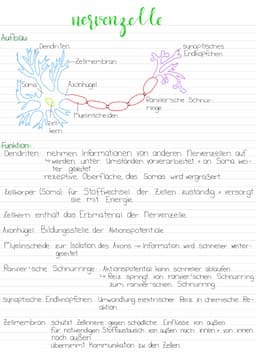 nervenzelle
Aufbau:
Dendriten
synaptisches
Endknöpfchen
Zellmembran
Soma
Axonhügel
Ranvier'sche Schnür-
ringe
Myelinscheiden
Zell
kern
Funktion:
Dendriten: nehmen Informationen von anderen Nervenzellen auf
↳ werden unter Umständen vorverarbeitet + an Soma wei-
ter geleitet
rezeptive Oberfläche des Somas wird vergrößert
Zellkörper (Soma): für Stoffwechsel der Zellen zuständig + versorgt
sie mit Energie
Zellkern: enthält das Erbmaterial der Nervenzelle
Axonhügel: Bildungsstelle der Aktionspotentiale
Myelinscheide: zur Isolation des Axons → Information wird schneller weiter-
geleitet
Ranvier'sche Schnürringe: Aktionspotential kann schneller ablaufen
↳ Reiz springt von ranvier'schen Schnürring
zum ranvier'schen Schnürring
synaptische Endknöpfchen: Umwandlung elektrischer Reiz in chemische Re-
aktion
Zellmembran: schützt Zellinnere gegen schädliche Einflüsse von außen
für notwendigen Stoffaustausch von außen nach innen + von innen
nach außen
übernimmt Kommunikation zw. den Zellen